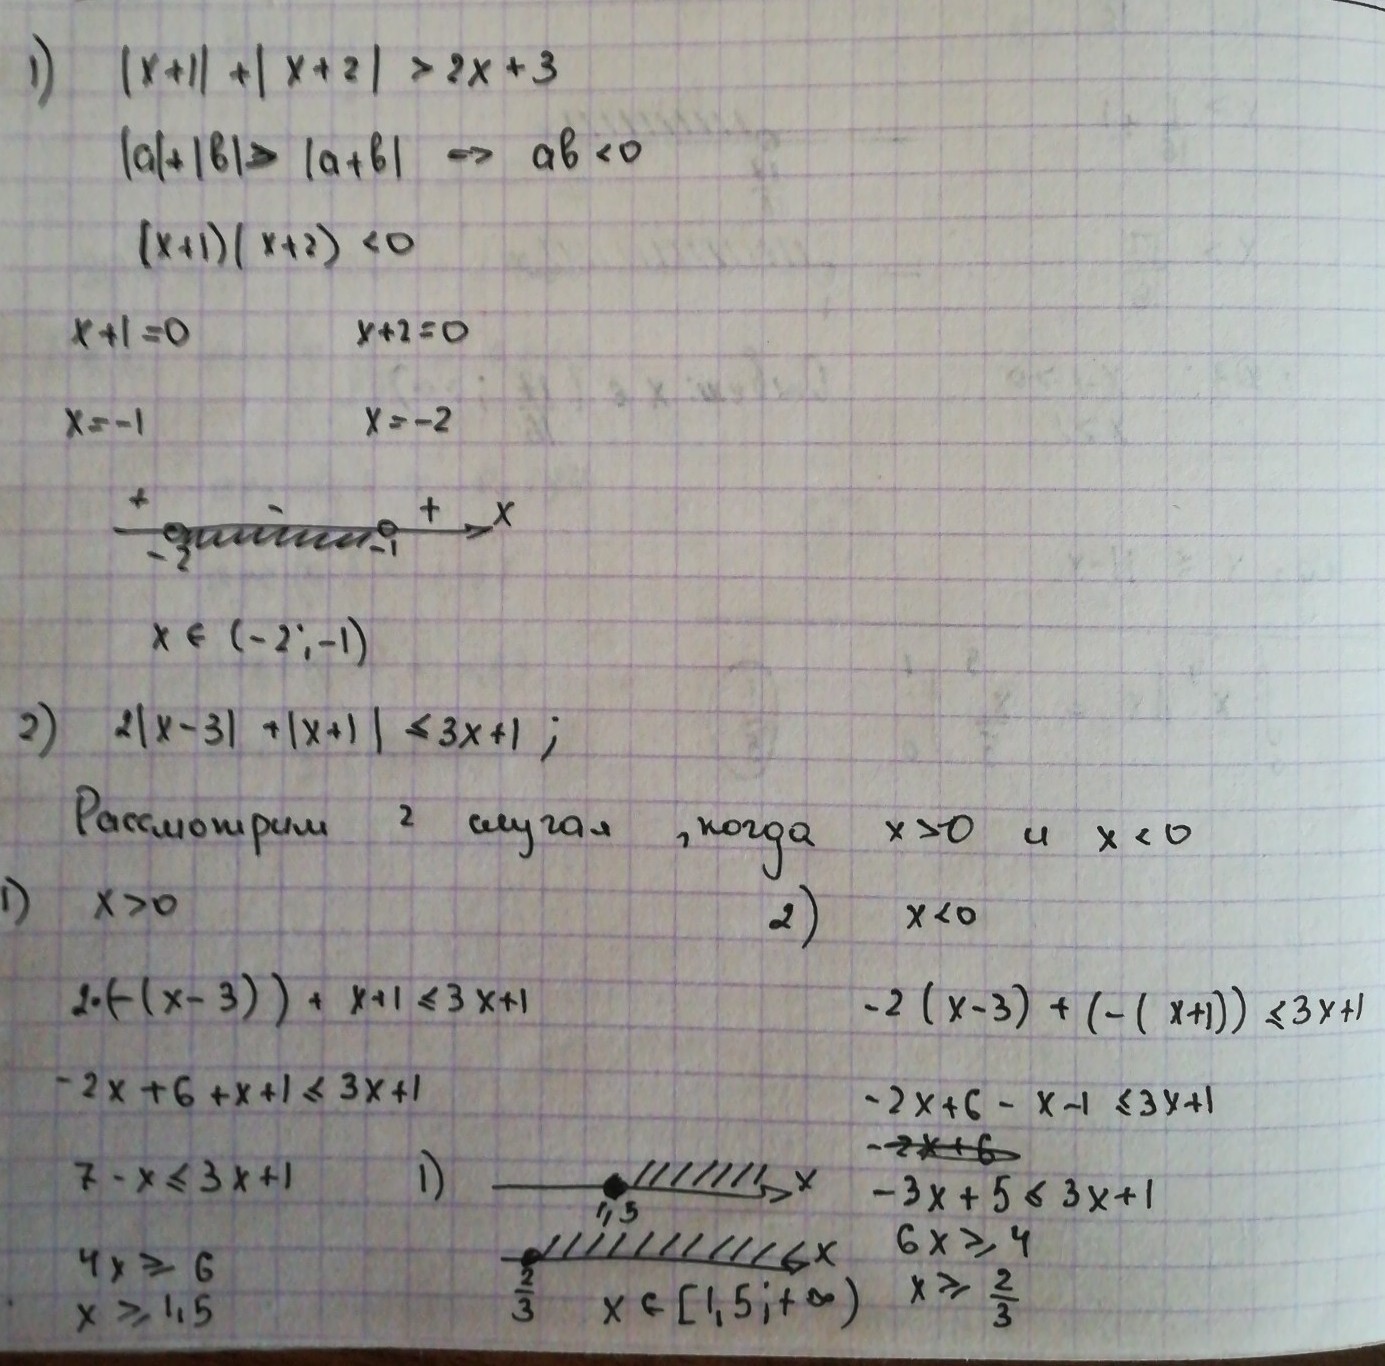 1) |x+1| + |x+2| > 2x+3
|a|+|b| > |a+b| => ab<0
(x+1)(x+2) <0
x+1=0 x+2=0
x=-1 x=-2
+ - + x
-2 -1
x ∈ (-2;-1)
2) 2|x-3| +|x+1| ≤ 3x+1 ;
Рассмотрим 2 случая , когда x>0 и x<0
1) x>0 2) x<0
2·(-(x-3)) + x+1 ≤ 3x+1 -2(x-3) + (-(x+1)) ≤ 3x+1
-2x+6+x+1 ≤ 3x+1 -2x+6-x-1 ≤ 3x+1
-2x+6
7-x ≤ 3x+1 1) x -3x+5 ≤ 3x+1
1,5
4x ≥ 6 x 6x ≥ 4
x ≥ 1,5 2/3 x ∈ [1,5;+∞) x ≥ 2/3